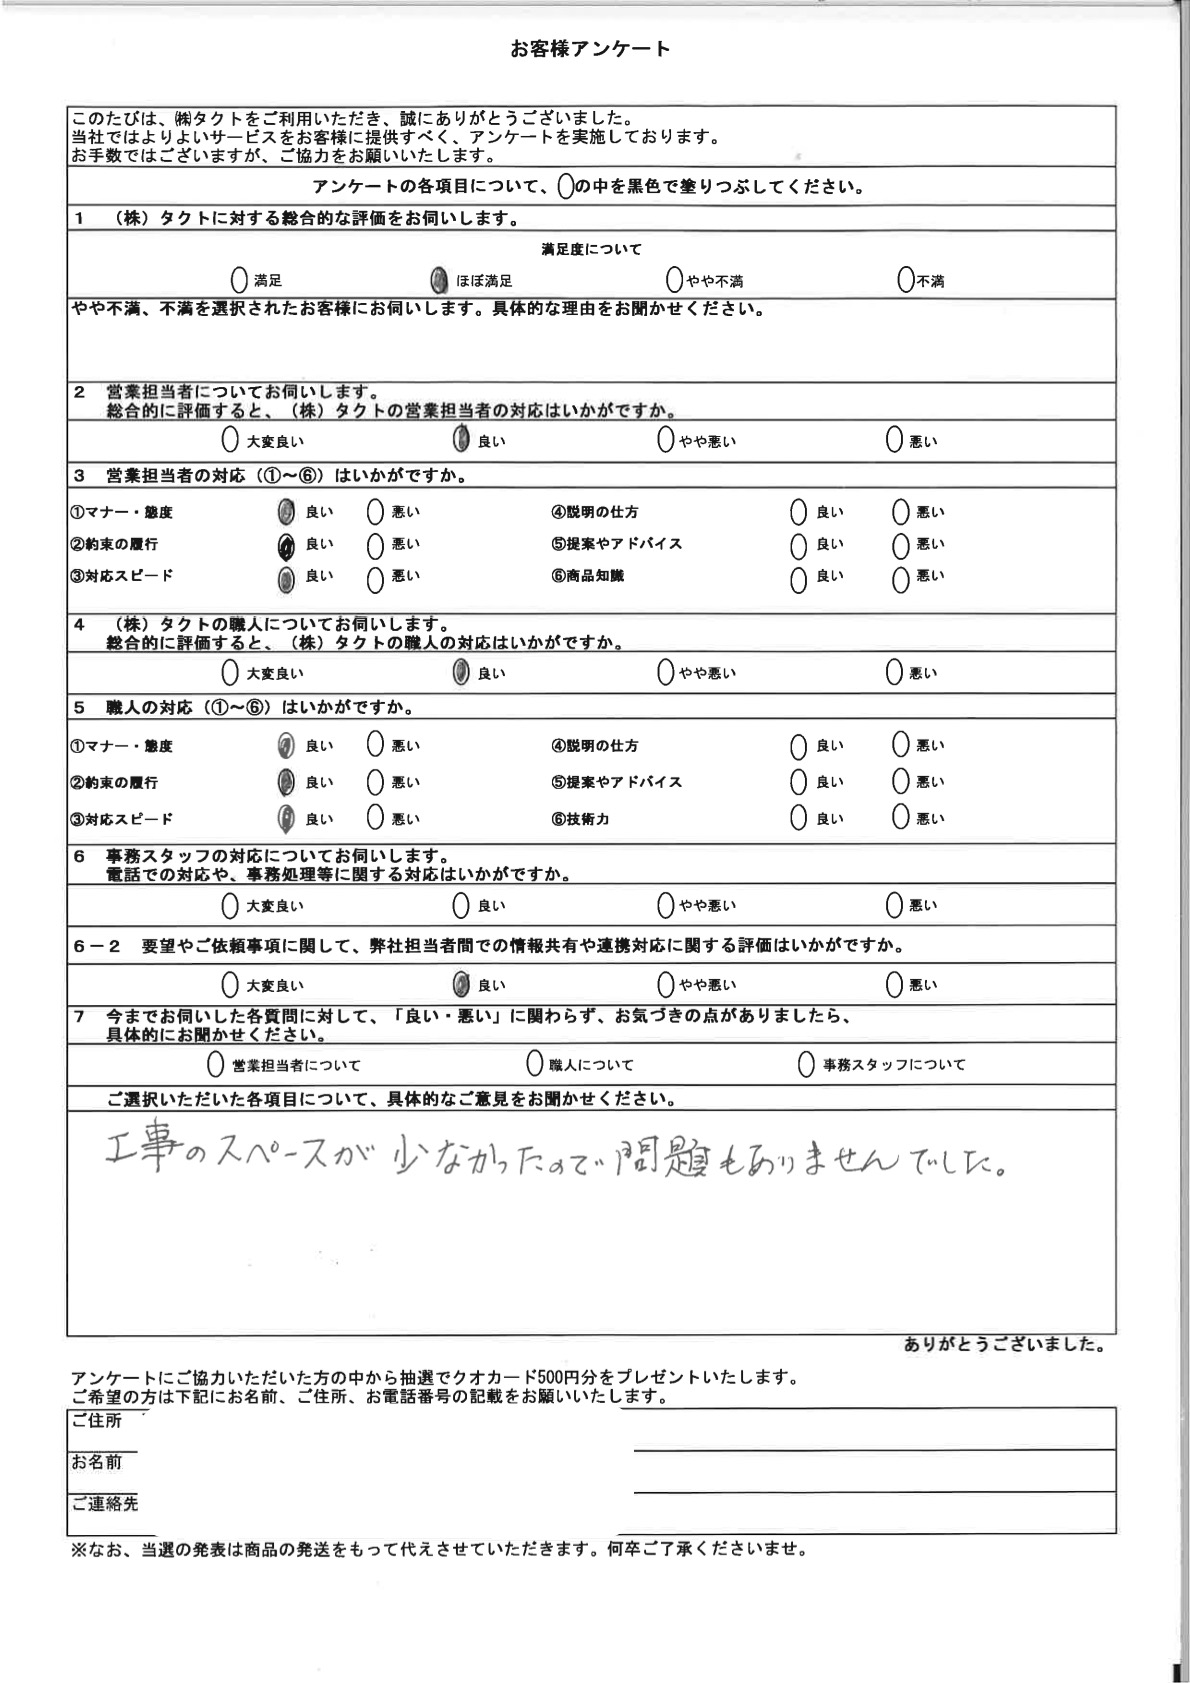 お客様アンケート
このたびは、㈱タクトをご利用いただき、誠にありがとうございました。
当社ではよりよいサービスをお客様に提供すべく、アンケートを実施しております。
お手数ではございますが、ご協力をお願いいたします。
アンケートの各項目について、○の中を黒色で塗りつぶしてください。
1 （株）タクトに対する総合的な評価をお伺いします。
満足度について
満足 ほぼ満足 やや不満 不満
やや不満、不満を選択されたお客様にお伺いします。具体的な理由をお聞かせください。
2 営業担当者についてお伺いします。
総合的に評価すると、（株）タクトの営業担当者の対応はいかがですか。
大変良い 良い やや悪い 悪い
3 営業担当者の対応（①～⑥）はいかがですか。
①マナー・態度 良い 悪い ④説明の仕方 良い 悪い
②約束の履行 良い 悪い ⑤提案やアドバイス 良い 悪い
③対応スピード 良い 悪い ⑥商品知識 良い 悪い
4 （株）タクトの職人についてお伺いします。
総合的に評価すると、（株）タクトの職人の対応はいかがですか。
大変良い 良い やや悪い 悪い
5 職人の対応（①～⑥）はいかがですか。
①マナー・態度 良い 悪い ④説明の仕方 良い 悪い
②約束の履行 良い 悪い ⑤提案やアドバイス 良い 悪い
③対応スピード 良い 悪い ⑥技術力 良い 悪い
6 事務スタッフの対応についてお伺いします。
電話での対応や、事務処理等に関する対応はいかがですか。
大変良い 良い やや悪い 悪い
6－2 要望やご依頼事項に関して、弊社担当者間での情報共有や連携対応に関する評価はいかがですか。
大変良い 良い やや悪い 悪い
7 今までお伺いした各質問に対して、「良い・悪い」に関わらず、お気づきの点がありましたら、
具体的にお聞かせください。
営業担当者について 職人について 事務スタッフについて
ご選択いただいた各項目について、具体的なご意見をお聞かせください。
工事のスペースが少なかったので問題もありませんでした。
ありがとうございました。
アンケートにご協力いただいた方の中から抽選でクオカード500円分をプレゼントいたします。
ご希望の方は下記にお名前、ご住所、お電話番号の記載をお願いいたします。
ご住所
お名前
ご連絡先
※なお、当選の発表は商品の発送をもって代えさせていただきます。何卒ご了承くださいませ。